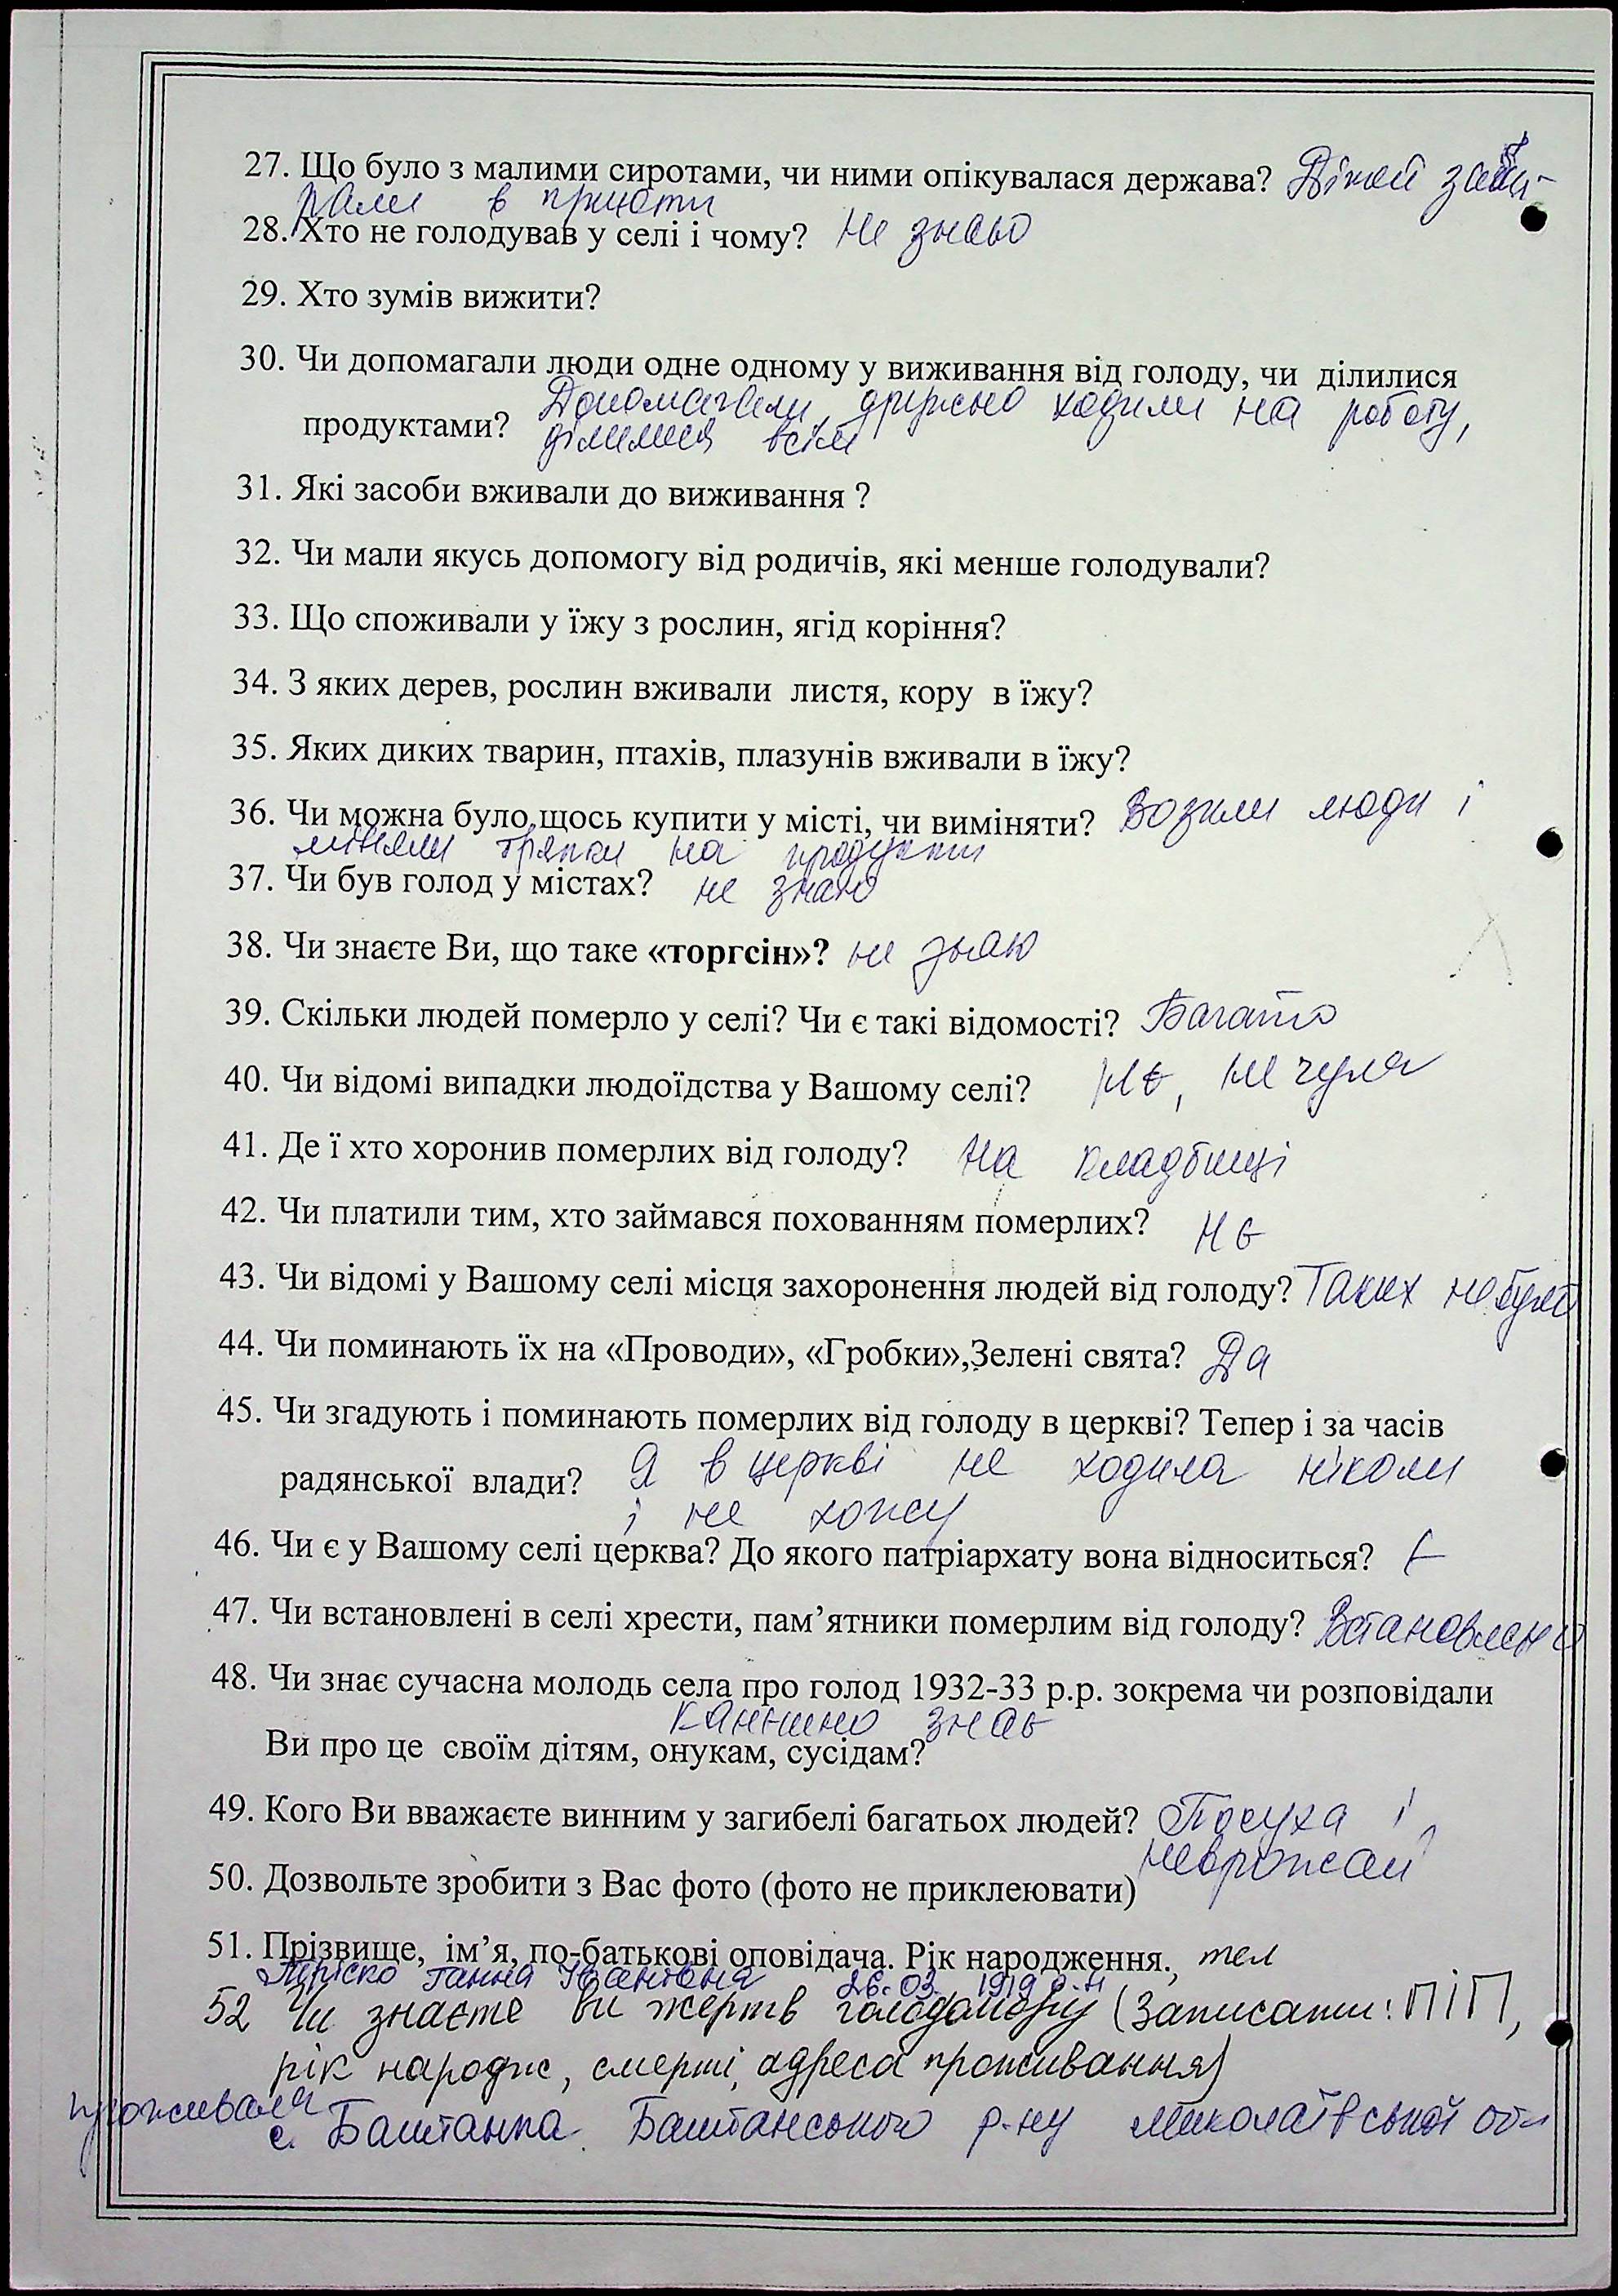 27. Що було з малими сиротами, чи ними опікувалася держава? Дітей заби-
рали в приюти
28. Хто не голодував у селі і чому? Не знаю
29. Хто зумів вижити?
30. Чи допомагали люди одне одному у виживання від голоду, чи ділилися
Допомагали, дружно ходили на роботу,
продуктами? ділилися всім
31. Які засоби вживали до виживання ?
32. Чи мали якусь допомогу від родичів, які менше голодували?
33. Що споживали у їжу з рослин, ягід коріння?
34. З яких дерев, рослин вживали листя, кору в їжу?
35. Яких диких тварин, птахів, плазунів вживали в їжу?
36. Чи можна було щось купити у місті, чи виміняти? Возили люди і
міняли тряпки на продукти
37. Чи був голод у містах? не знаю
38. Чи знаєте Ви, що таке «торгсін»? не знаю
39. Скільки людей померло у селі? Чи є такі відомості? Багато
40. Чи відомі випадки людоїдства у Вашому селі? Нє, не чула
41. Де ї хто хоронив померлих від голоду? На кладбищі
42. Чи платили тим, хто займався похованням померлих? Нє
43. Чи відомі у Вашому селі місця захоронення людей від голоду? Таких не було
44. Чи поминають їх на «Проводи», «Гробки»,Зелені свята? Да
45. Чи згадують і поминають померлих від голоду в церкві? Тепер і за часів
радянської влади? Я в церкві не ходила ніколи
і не хожу
46. Чи є у Вашому селі церква? До якого патріархату вона відноситься? Є
47. Чи встановлені в селі хрести, пам’ятники померлим від голоду? Встановлені
48. Чи знає сучасна молодь села про голод 1932-33 р.р. зокрема чи розповідали
канешно знає
Ви про це своїм дітям, онукам, сусідам?
49. Кого Ви вважаєте винним у загибелі багатьох людей? Посуха і
неврожай
50. Дозвольте зробити з Вас фото (фото не приклеювати)
51. Прізвище, ім’я, по-батькові оповідача. Рік народження., тел
Ганна Іванівна 26.03. 1919 р.н
52 Чи знаєте ви жертв голодомору (Записати: ПІП,
рік народж, смерті, адреса проживання)
проживала
с. Баштанка Баштанського р-ну Миколаївської обл